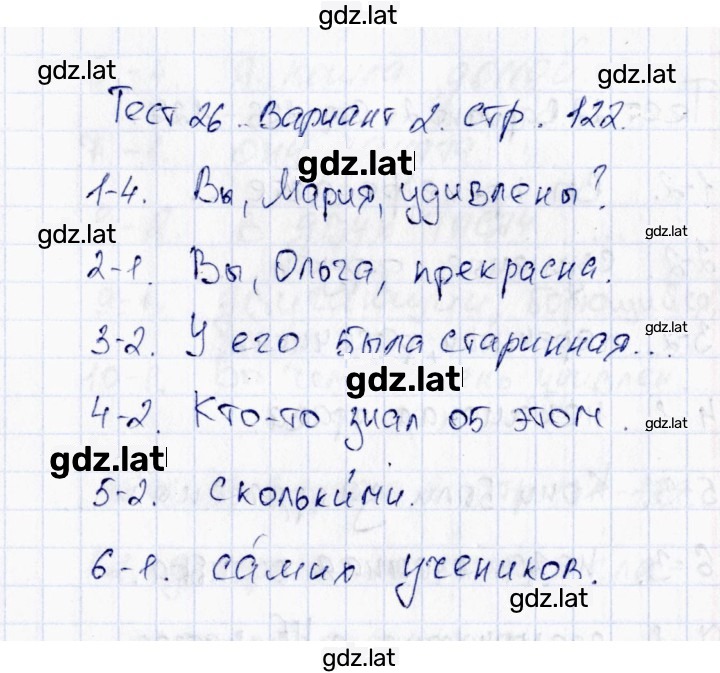 gdz.lat
gdz.lat
gdz.lat
Тест 26. Вариант 2. стр. 122.
gdz.lat
1-4. Вы, Мария, удивлены?
gdz.lat
gdz.lat
2-1. Вы, Ольга, прекрасна.
gdz.lat
3-2. У его была старинная...
gdz.lat
4-2. Кто-то знал об этом.
gdz.lat
gdz.lat
5-2. Сколькими́.
6-1. са́мих учеников.
gdz.lat
gdz.lat